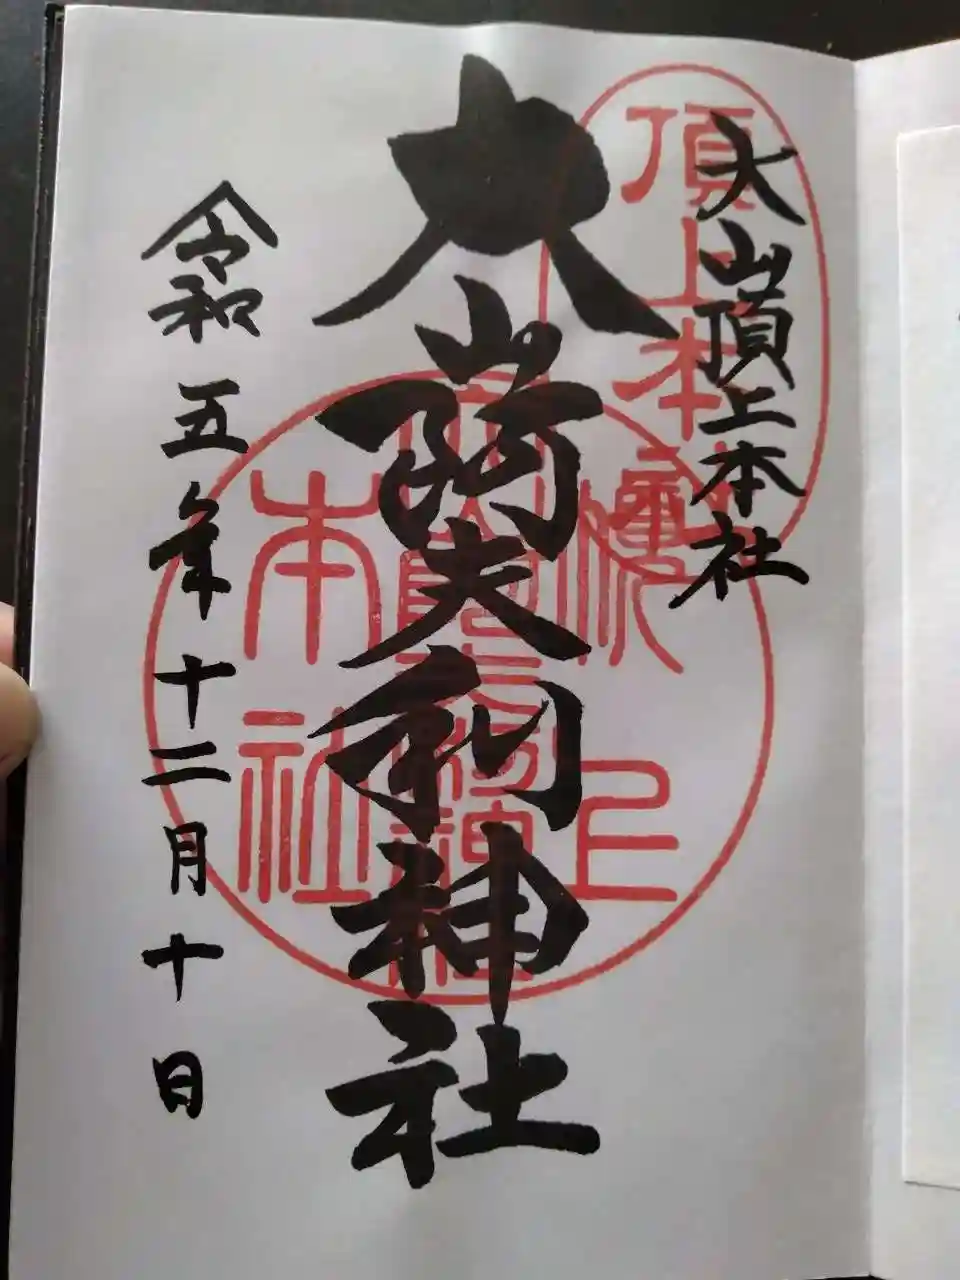 大山頂上本社
頂上本社
大山阿夫利神社
本社
令和五年十二月十日